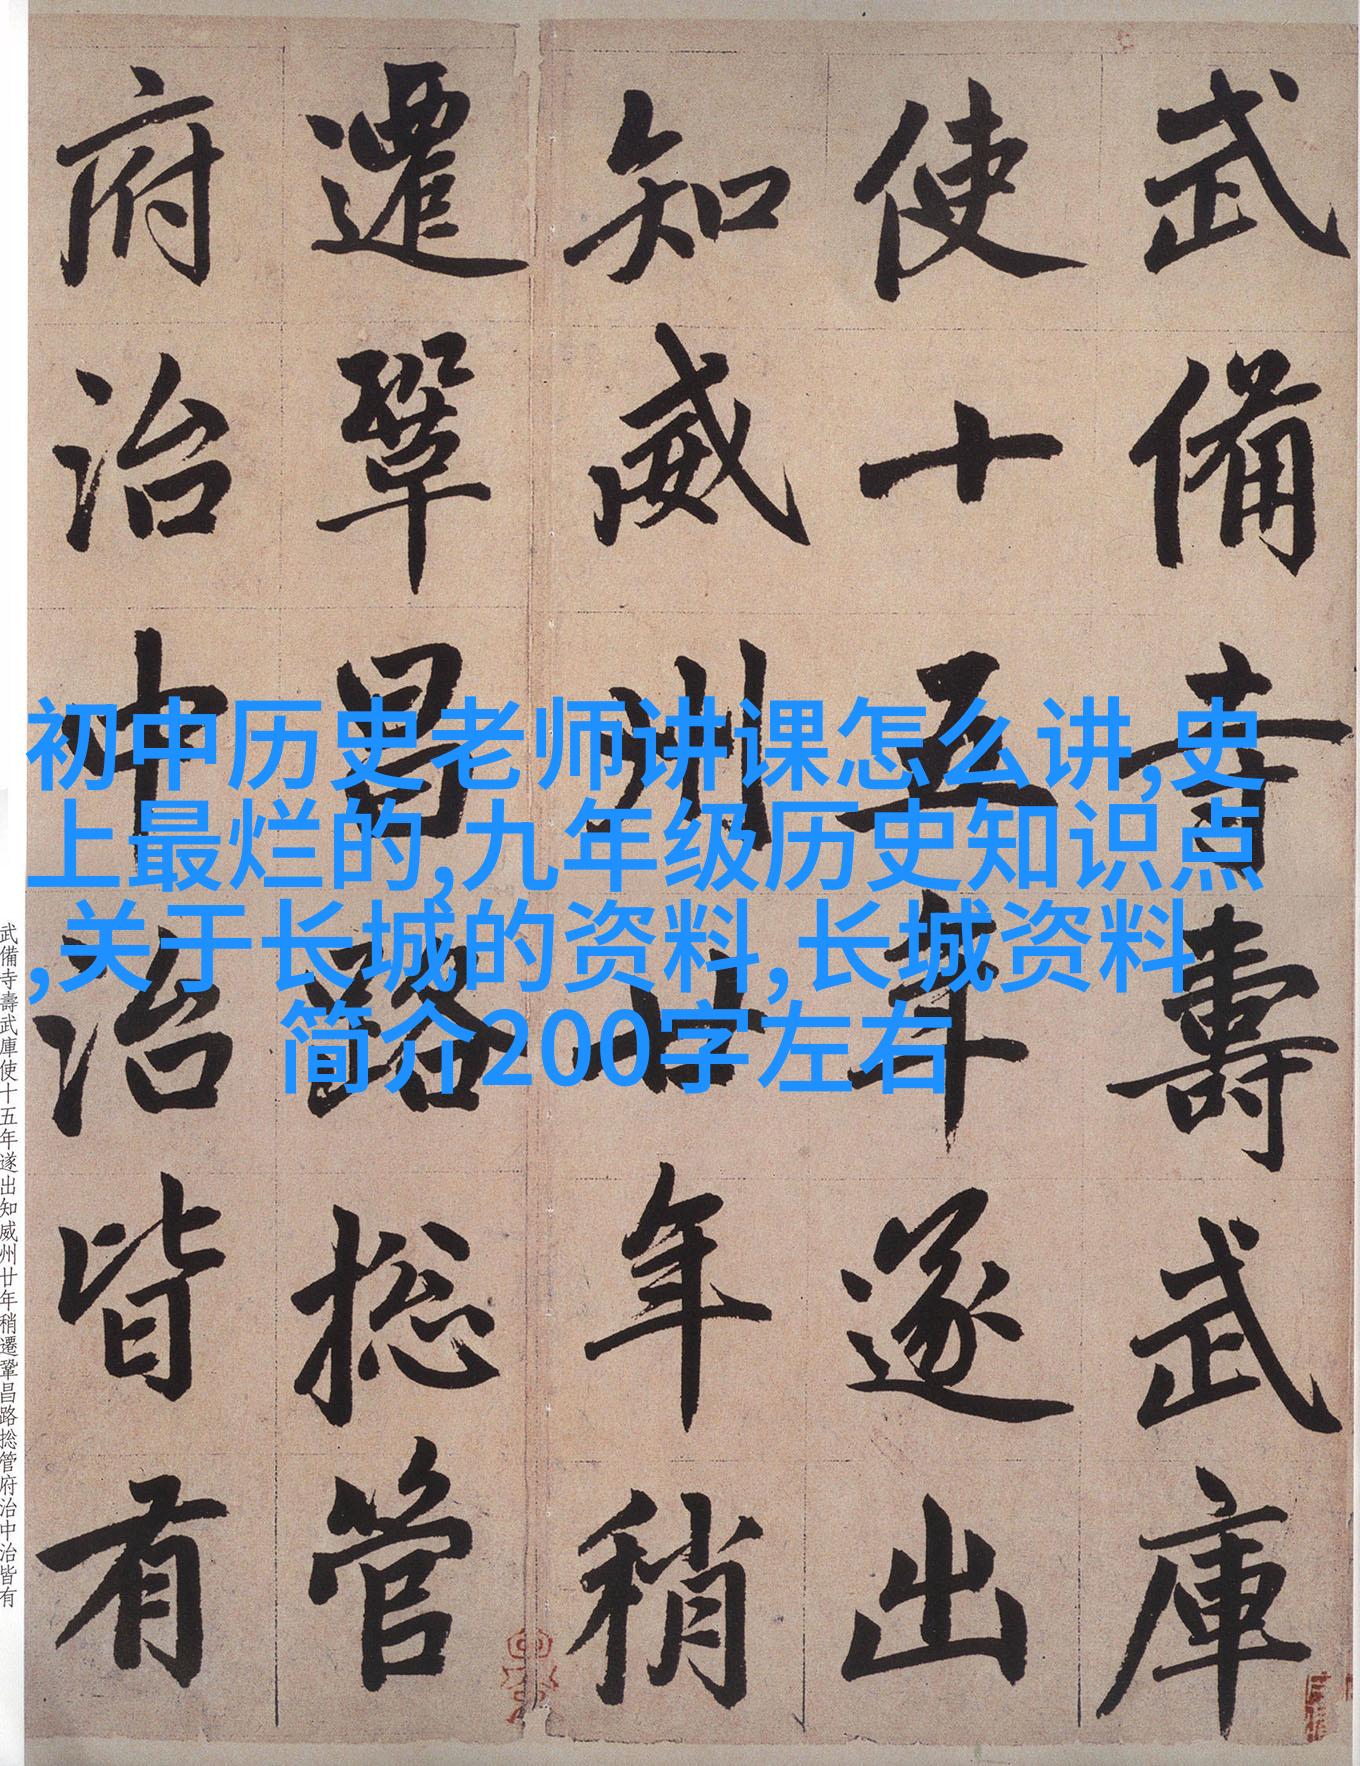 武備寺壽武庫
使十五年遂出
知威州廿年稍
遷鞏昌路捴管
府治中治皆有
初中历史老师讲课怎么讲,史
上最烂的,九年级历史知识点
,关于长城的资料,长城资料
简介200字左右
武備寺壽武庫使十五年遂出知威州廿年稍遷鞏昌路捴管府治中治皆有